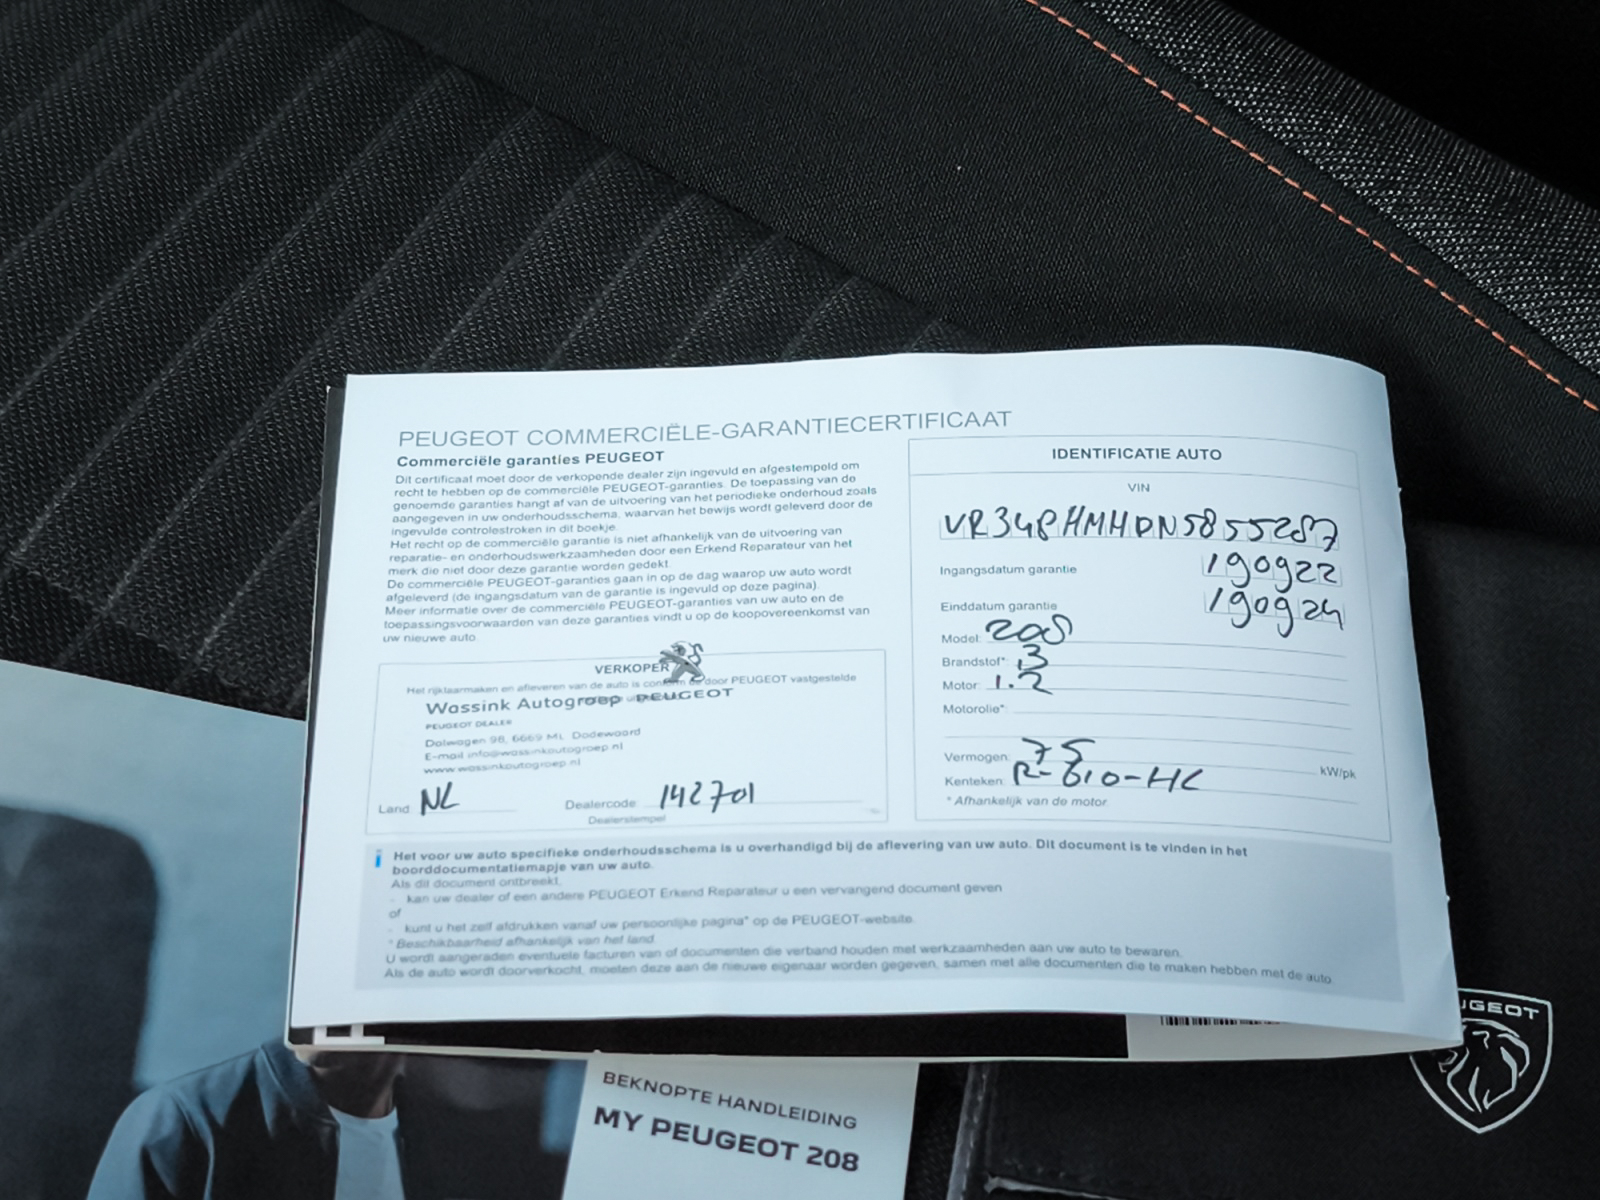 PEUGEOT COMMERCIËLE-GARANTIECERTIFICAAT
Commerciële garanties PEUGEOT
Dit certificaat moet door de verkopende dealer zijn ingevuld en afgestempeld om
recht te hebben op de commerciële PEUGEOT-garanties. De toepassing van de
genoemde garanties hangt af van de uitvoering van het periodieke onderhoud zoals
aangegeven in uw onderhoudsschema, waarvan het bewijs wordt geleverd door de
ingevulde controlestroken in dit boekje.
Het recht op de commerciële garantie is niet afhankelijk van de uitvoering van
reparatie- en onderhoudswerkzaamheden door een Erkend Reparateur van het
merk die niet door deze garantie worden gedekt.
De commerciële PEUGEOT-garanties gaan in op de dag waarop uw auto wordt
afgeleverd (de ingangsdatum van de garantie is ingevuld op deze pagina).
Meer informatie over de commerciële PEUGEOT-garanties van uw auto en de
toepassingsvoorwaarden van deze garanties vindt u op de koopovereenkomst van
uw nieuwe auto.
VERKOPER
Het rijklaarmaken en afleveren van de auto is conform de door PEUGEOT vastgestelde
Wassink Autogroep PEUGEOT
PEUGEOT DEALER
Dalwagen 98, 6669 ML Dodewaard
E-mail info@wassinkautogroep.nl
www.wassinkautogroep.nl
Land: NL Dealercode: 142701
Dealerstempel
IDENTIFICATIE AUTO
VIN
VR348PHMHDN5855287
Ingangsdatum garantie 190922
Einddatum garantie 190924
Model: 208
Brandstof*: B
Motor: 1.2
Motorolie*:
Vermogen: 75 kW/pk
Kenteken: R-610-HL
* Afhankelijk van de motor.
i Het voor uw auto specifieke onderhoudsschema is u overhandigd bij de aflevering van uw auto. Dit document is te vinden in het
boorddocumentatiemapje van uw auto.
Als dit document ontbreekt,
- kan uw dealer of een andere PEUGEOT Erkend Reparateur u een vervangend document geven
of
- kunt u het zelf afdrukken vanaf uw persoonlijke pagina* op de PEUGEOT-website.
* Beschikbaarheid afhankelijk van het land.
U wordt aangeraden eventuele facturen van of documenten die verband houden met werkzaamheden aan uw auto te bewaren.
Als de auto wordt doorverkocht, moeten deze aan de nieuwe eigenaar worden gegeven, samen met alle documenten die te maken hebben met de auto.
UGEOT
BEKNOPTE HANDLEIDING
MY PEUGEOT 208